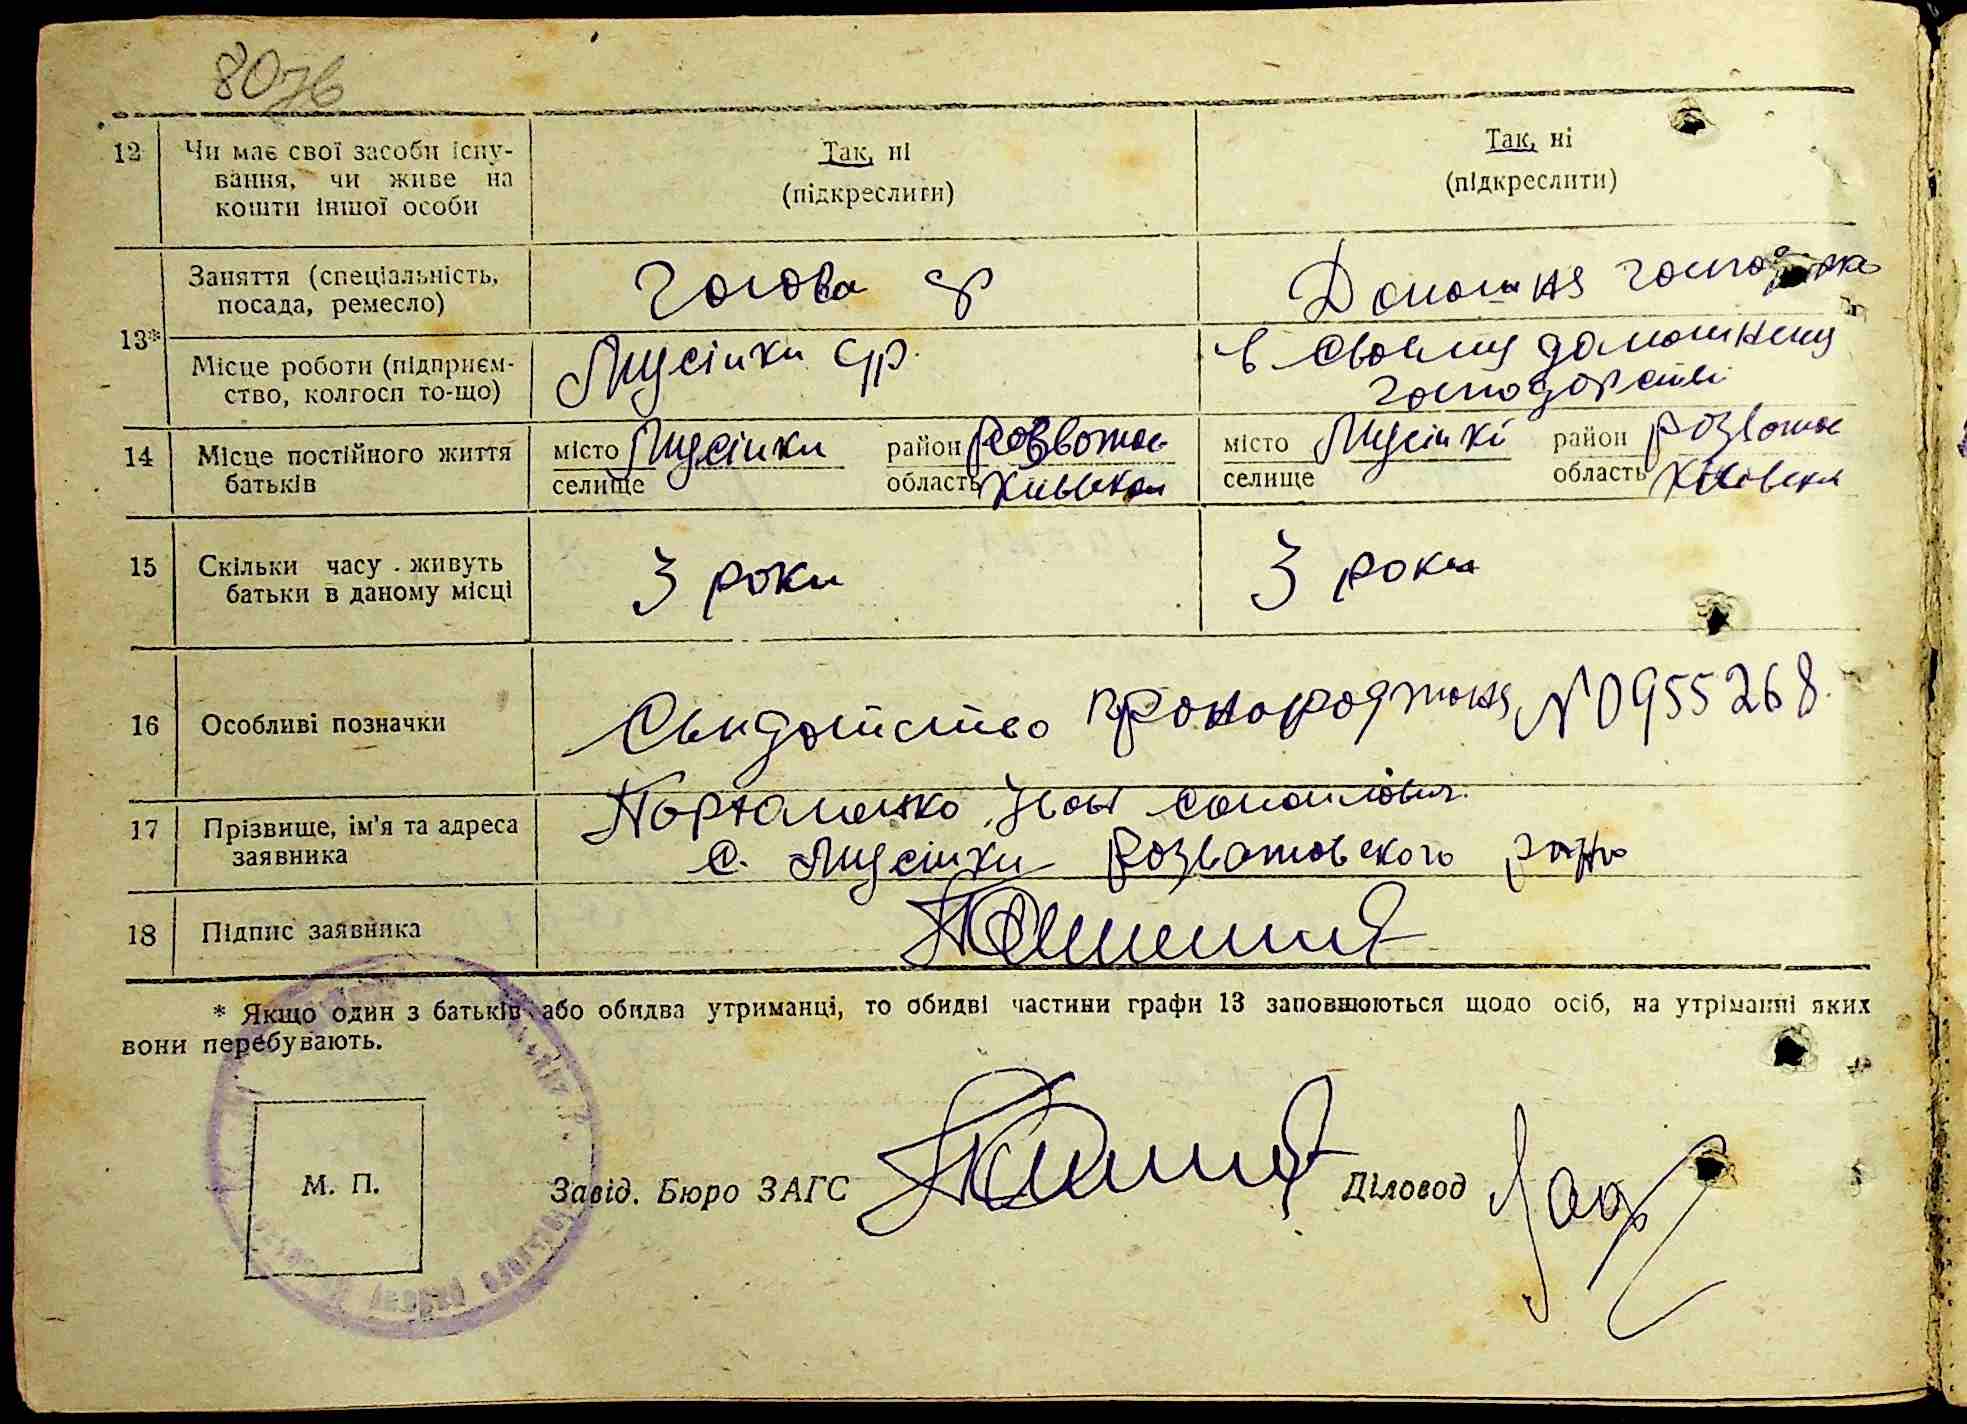 80зв
12 Чи має свої засоби існу-
вання, чи живе на
кошти іншої особи
Так, ні
(підкреслити)
Так, ні
(підкреслити)
13*
Заняття (спеціальність,
посада, ремесло)
Голова ср
Домашня господарка
Місце роботи (підприєм-
ство, колгосп то-що)
Мусійки ср.
в своєму домашньому
господарстві
14 Місце постійного життя
батьків
місто Мусійки район Розваже
селище область Київська
місто Мусійкі район Розваже
селище область Київська
15 Скільки часу живуть
батьки в даному місці
3 роки
3 роки
16 Особливі позначки
Свидотство про народження №0955268
17 Прізвище, ім'я та адреса
заявника
Іван
с. Мусійки Розважовского району
18 Підпис заявника
* Якщо один з батьків або обидва утриманці, то обидві частини графи 13 заповнюються щодо осіб, на утріманні яких
вони перебувають.
М. П.
Завід. Бюро ЗАГС
Діловод